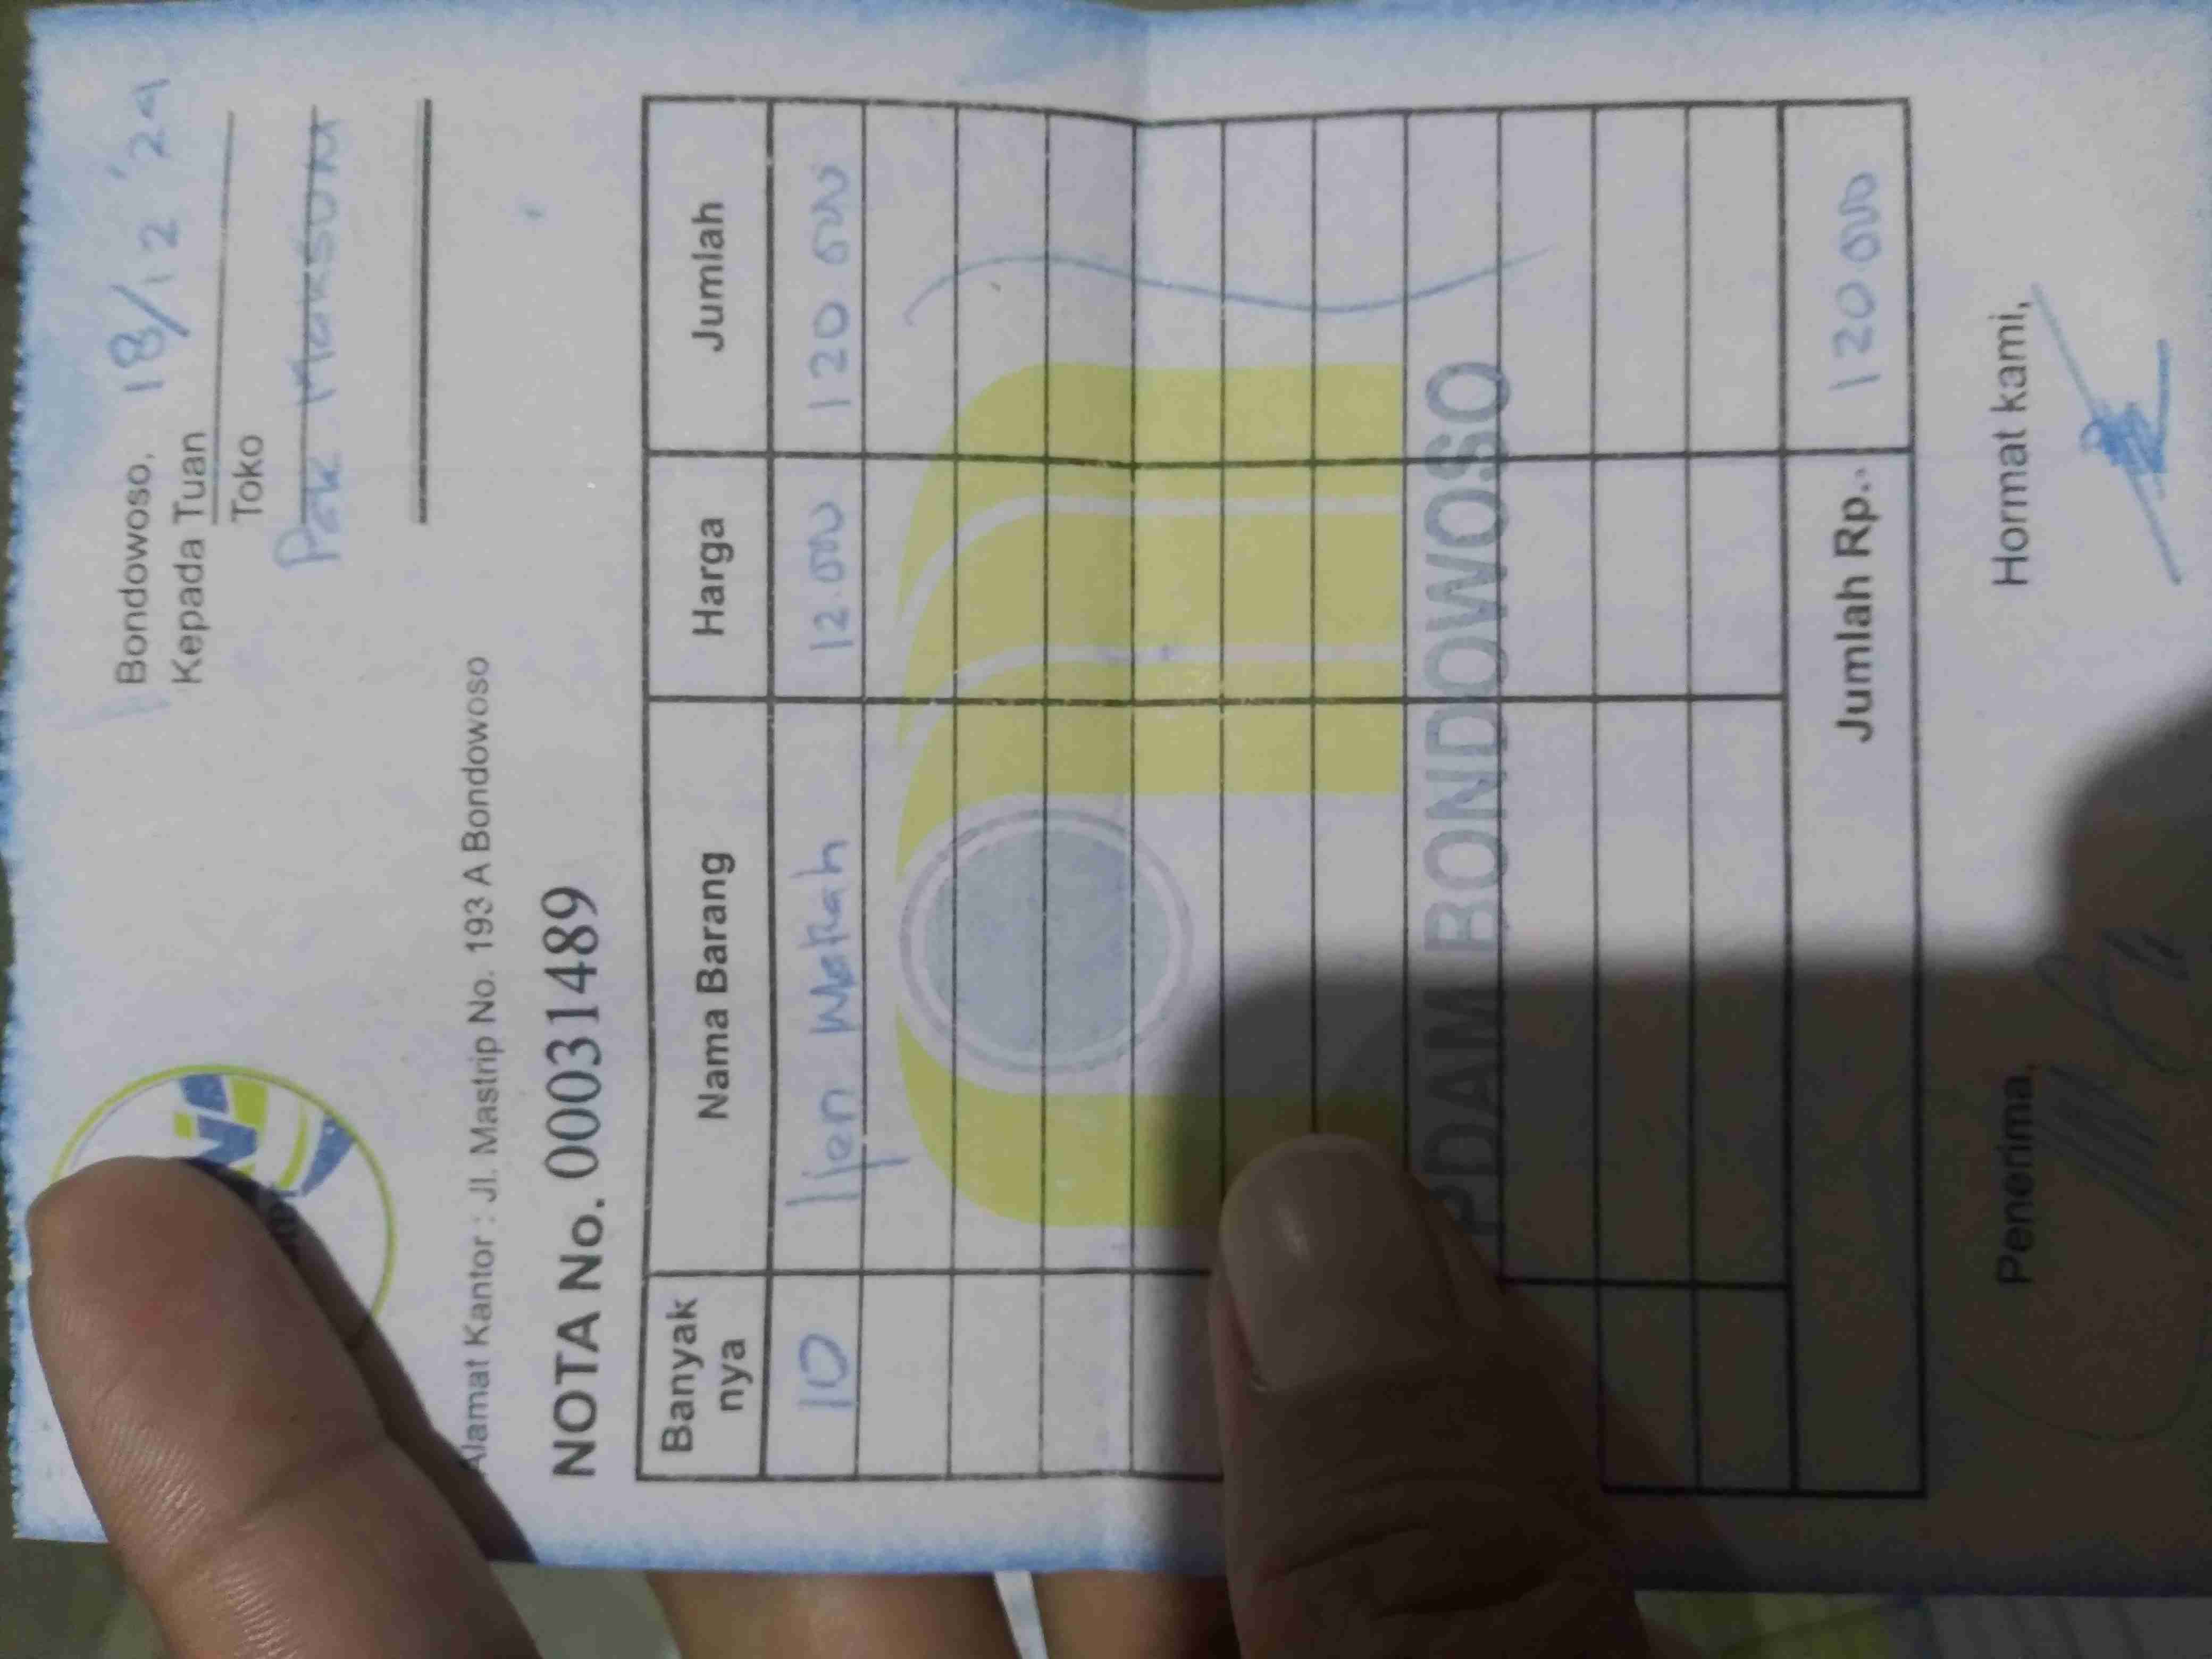 Bondowoso, 18/12 '24
Kepada Tuan
Toko
Pak Maksum
Alamat Kantor : Jl. Mastrip No. 193 A Bondowoso
NOTA No. 00031489
Banyak nya Nama Barang Harga Jumlah
10 Ijen Merah 12.000 120 000
PDAM BONDOWOSO
Jumlah Rp. 120 000
Penerima, Hormat kami,